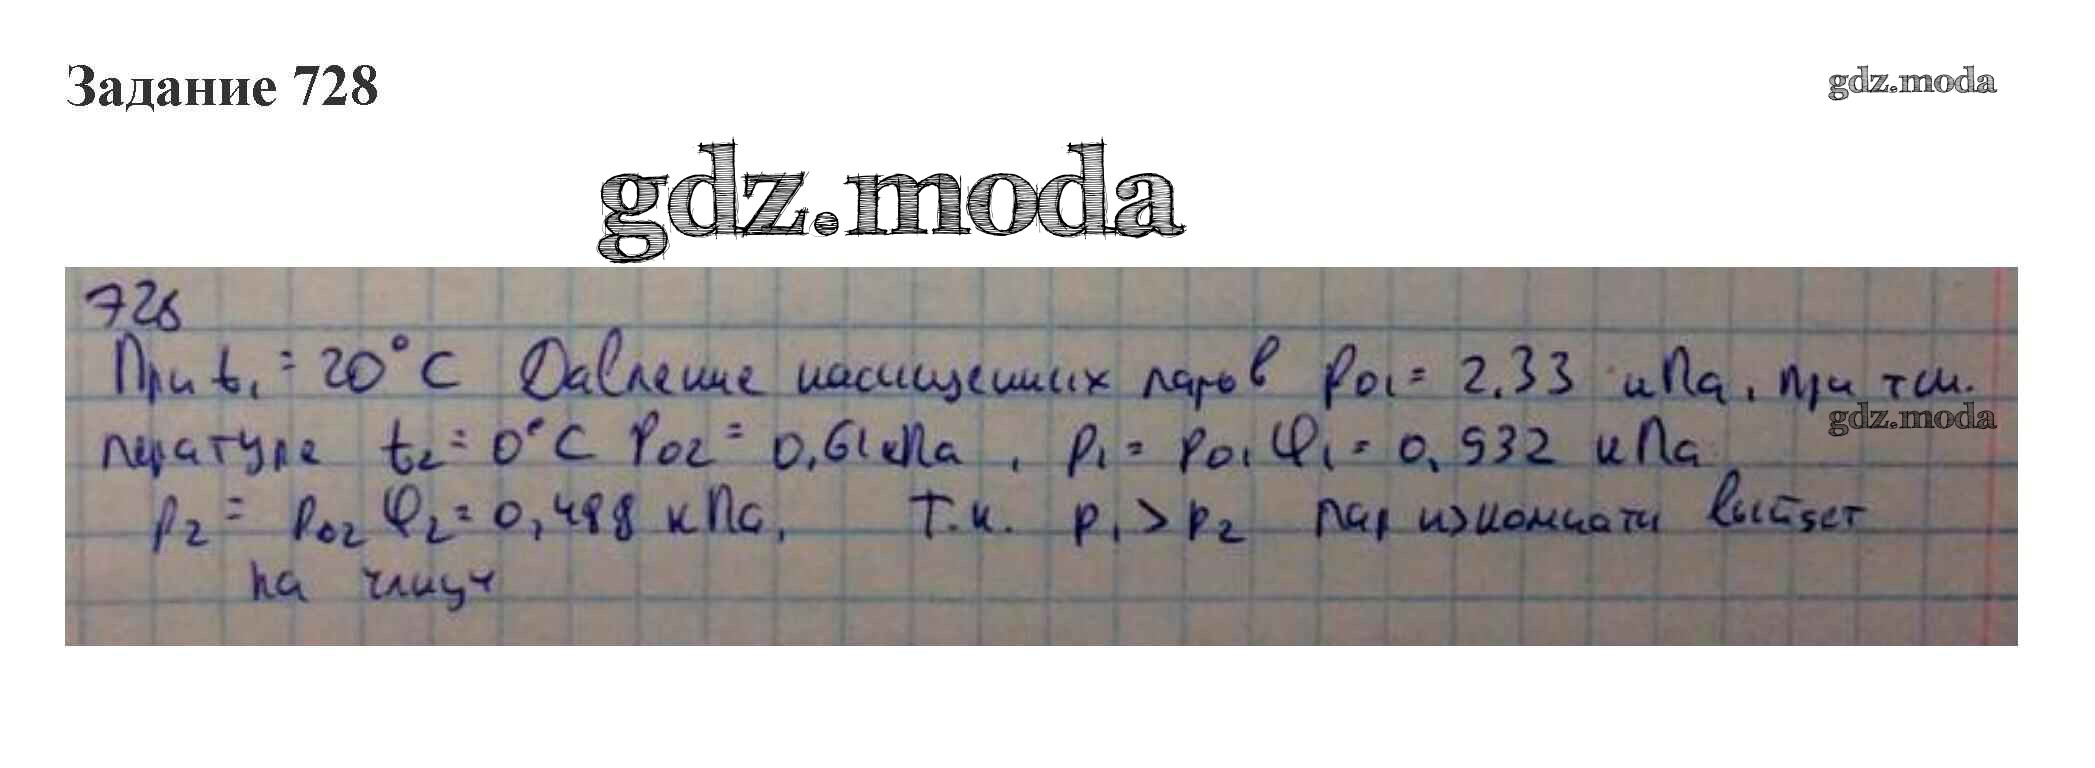 Задание 728
gdz.moda
gdz.moda
728
При t₁ = 20°С Давление насыщенных паров p₀₁ = 2.33 кПа, при тем-
gdz.moda
пературе t₂ = 0°С p₀₂ = 0,61 кПа, p₁ = p₀₁φ₁ = 0,932 кПа
p₂ = p₀₂φ₂ = 0,488 кПа, Т.к. p₁ > p₂ пар из комнаты выйдет
на улицу